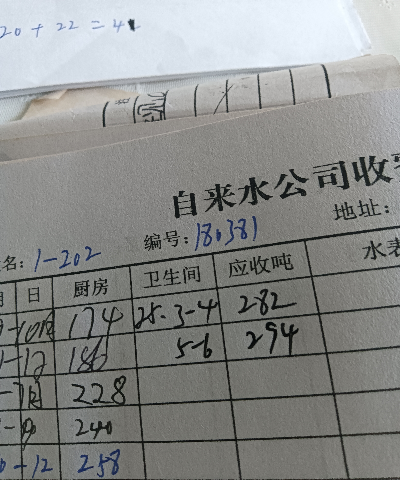 20 + 22 = 42
自来水公司收
名: 1-202 编号: 180381 地址:
月 日 厨房 卫生间 应收吨 水表
10月 174 25.3-4 282
12 186 5-6 294
7月 228
240
-12 258